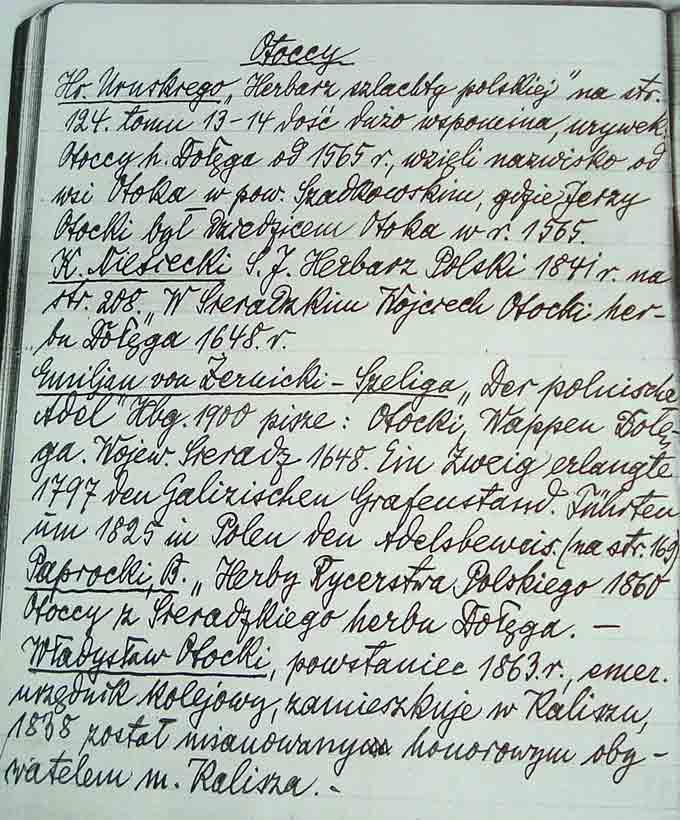 Otoccy
Hr. Uruskiego „Herbarz szlachty polskiej" na str.
124. tomu 13-14 dość dużo wspomina, urywek:
Otoccy h. Dołęga od 1565 r., wzięli nazwisko od
wsi Otoka w pow. Szadkowskim, gdzie Jerzy
Otocki był dziedzicem Otoka w r. 1565.
K. Niesiecki S. J. Herbarz Polski 1841 r. na
str. 208. „W Sieradzkim Wojciech Otocki her-
bu Dołęga 1648. r.
Emiljan von Żernicki - Szeliga „Der polnische
Adel" Hbg. 1900 pisze: Otocki, Wappen Dołę-
ga. Wojew. Sieradz 1648. Ein Zweig erlangte
1797 den Galizischen Grafenstand. Führten
um 1825 in Polen den Adelsbeweis. (na str. 169)
Paprocki, B. „Herby Rycerstwa Polskiego 1860
Otoccy z Sieradzkiego herbu Dołęga. —
Władysław Otocki, powstaniec 1863. r., emer.
urzędnik kolejowy, zamieszkuje w Kaliszu,
1838 został mianowany honorowym oby-
watelem m. Kalisza. -